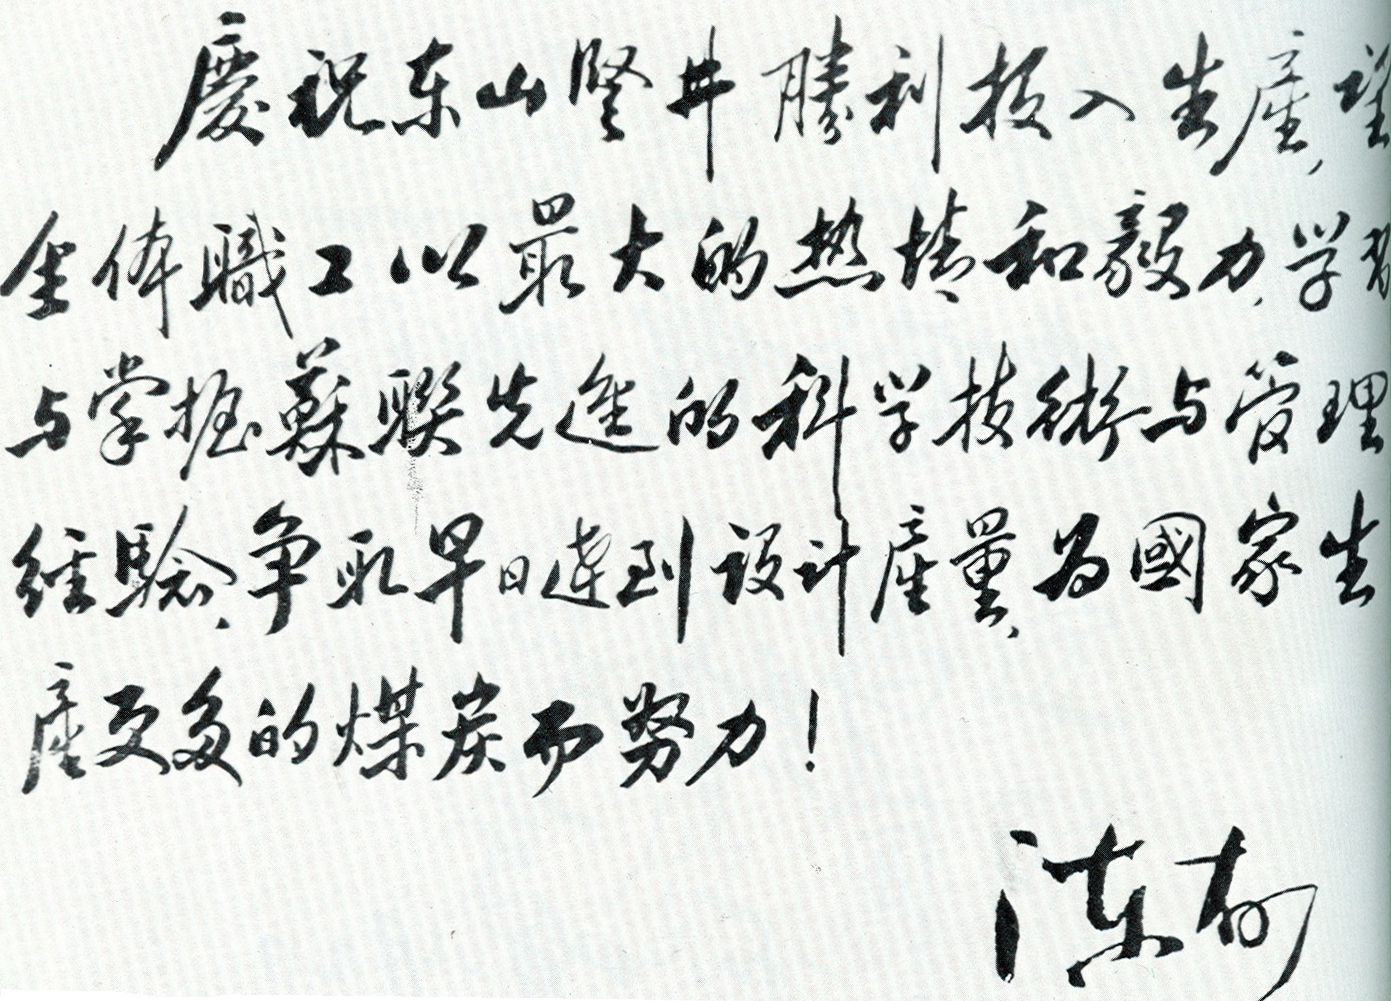 慶祝东山竪井勝利投入生産，望
全体職工以最大的热情和毅力，学習
与掌握蘇联先進的科学技術与管理
经驗，争取早日達到設计産量，为國家生
産更多的煤炭而努力！
陈郁